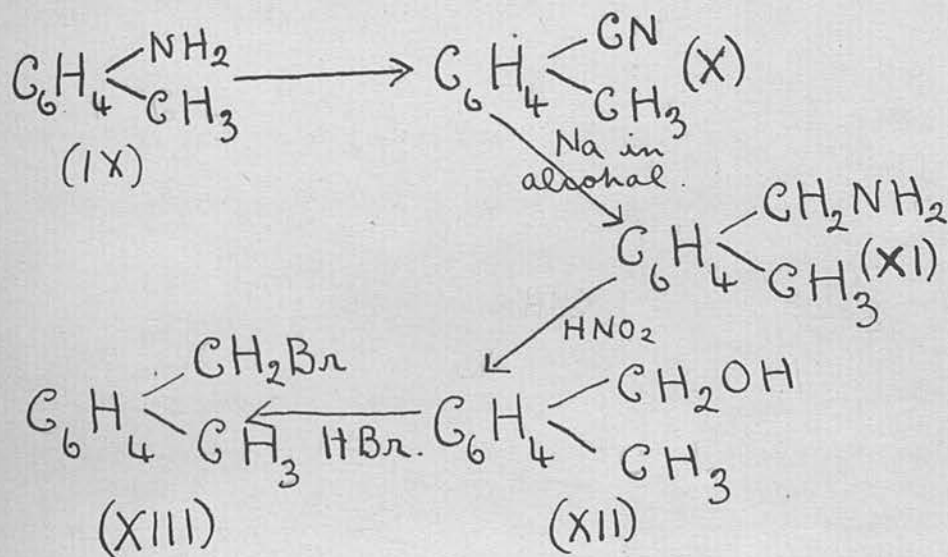 C₆H₄ NH₂ CH₃ → C₆H₄ CN CH₃ (X)
(IX)
Na in
alcohal.
C₆H₄ CH₂NH₂ CH₃ (XI)
HNO₂
C₆H₄ CH₂Br CH₃ ← HBr. C₆H₄ CH₂OH CH₃
(XIII) (XII)